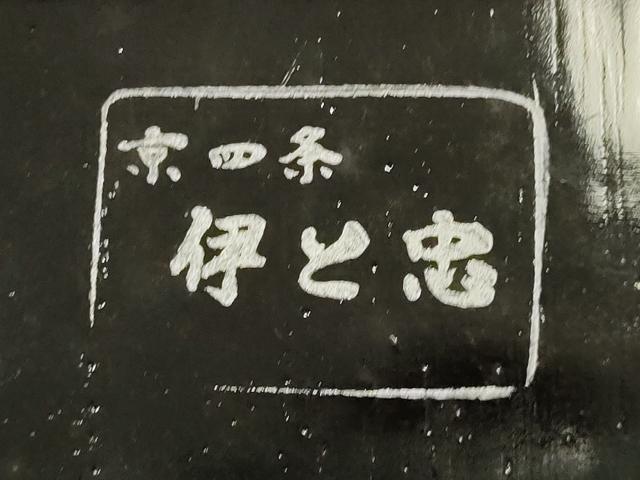 京四条
伊と忠